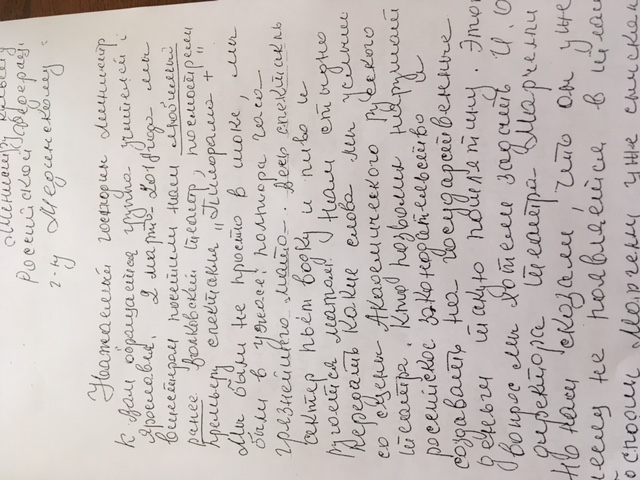 Министру культуры
Российской Федерации
г-ну Мединскому
Уважаемый господин министр
к вам обращается группа зрителей:
ярославцев. 2 марта 2018 года мы
коллективом посетили наш любимый
ранее Волковский театр, посмотрели
премьеру спектакля "Пилорама +"
Мы были не просто в шоке, мы
были в ужасе! Полтора часа
грязнейшего мата. Весь спектакль
актер пьёт водку и пиво и
ругается матом! Нам стыдно
передать какие слова мы услыши
со сцены Академического Русского
театра. Кто позволил нарушать
российское законодательство и
создавать на государственные
деньги такую похабщину. Этот
вопрос мы хотели задать И.О
директора театра Марчелли
Но нам сказали что он уже
не появляется в
Марчелли уже